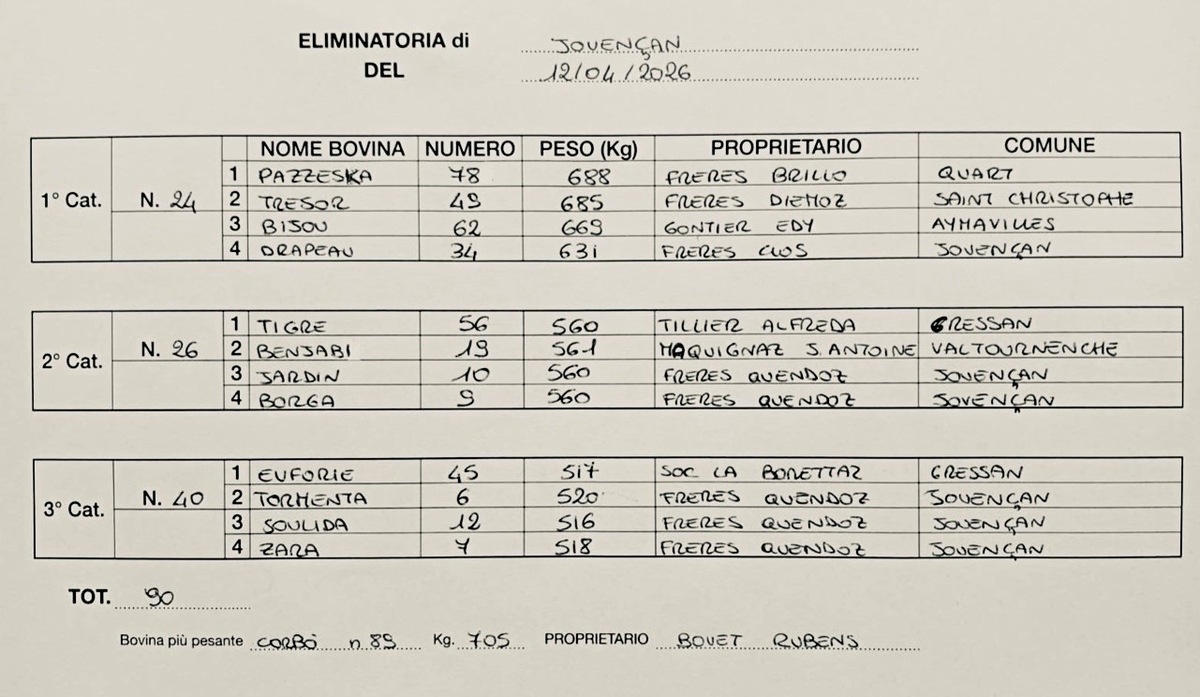 ELIMINATORIA di JOVENÇAN
DEL 12/04/2026
NOME BOVINA NUMERO PESO (Kg) PROPRIETARIO COMUNE
1° Cat. N. 24
1 PAZZESKA 78 688 FRERES BRILLO QUART
2 TRESOR 49 685 FRERES DIEMOZ SAINT CHRISTOPHE
3 BIJOU 62 669 GONTIER EDY AYMAVILLES
4 DRAPEAU 34 631 FRERES CLOS JOVENÇAN
2° Cat. N. 26
1 TIGRE 56 560 TILLIER ALFREDA GRESSAN
2 BENJABI 19 561 MAQUIGNAZ S. ANTOINE VALTOURNENCHE
3 JARDIN 10 560 FRERES QUENDOZ JOVENÇAN
4 BORGA 9 560 FRERES QUENDOZ JOVENÇAN
3° Cat. N. 40
1 EUFORIE 45 517 SOC LA BORETTAZ GRESSAN
2 TORMENTA 6 520 FRERES QUENDOZ JOVENÇAN
3 SOULIDA 12 516 FRERES QUENDOZ JOVENÇAN
4 ZARA 7 518 FRERES QUENDOZ JOVENÇAN
TOT. 90
Bovina più pesante CORBÒ n 89 Kg. 705 PROPRIETARIO BOVET RUBENS